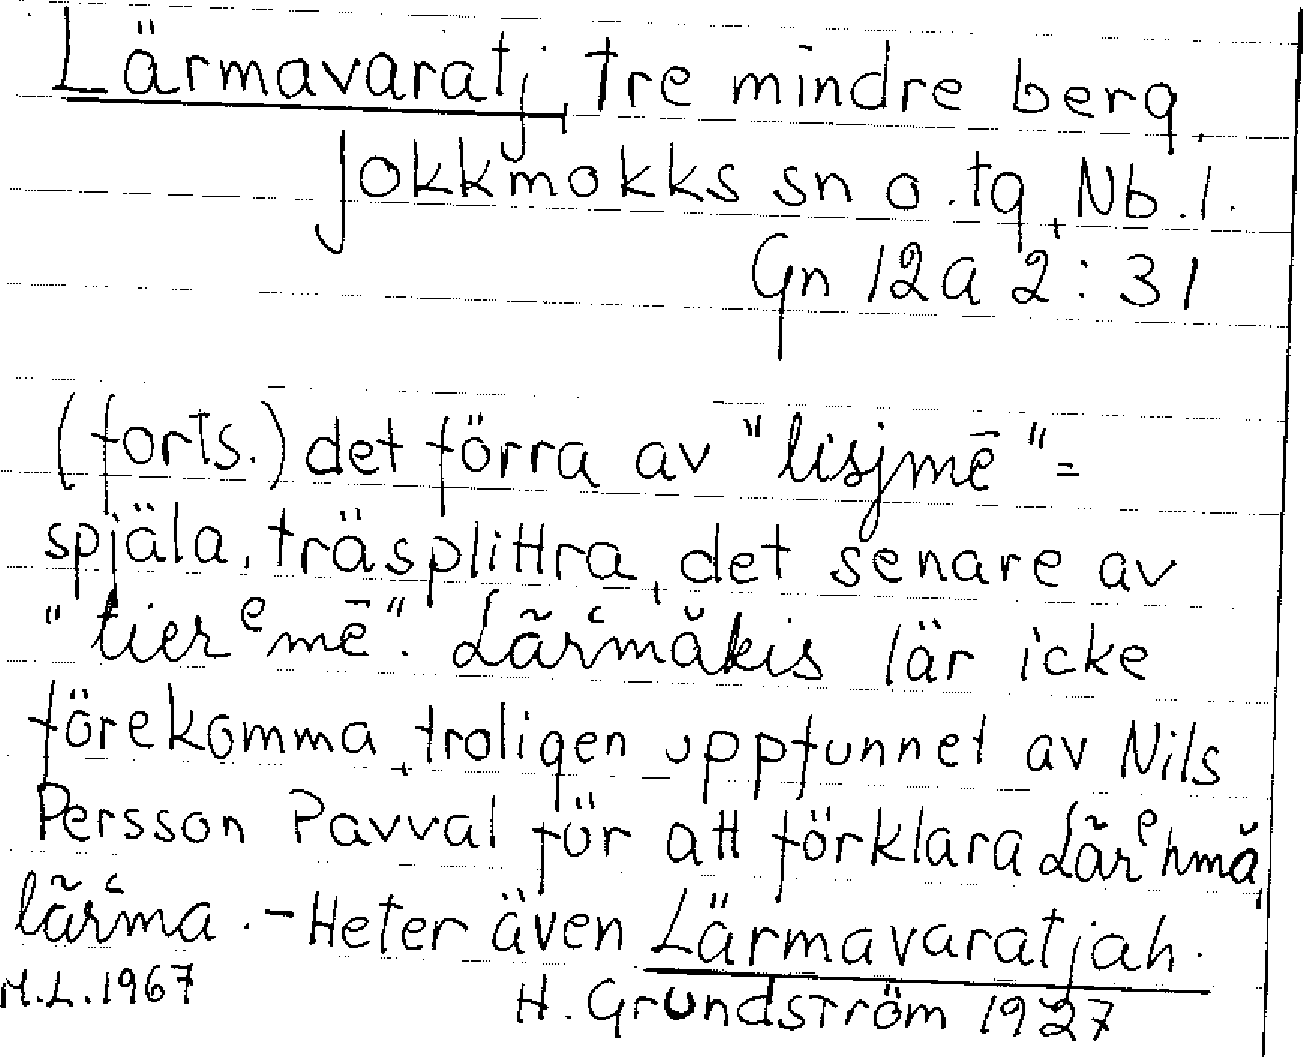 Lärmavaratj, tre mindre berg,
Jokkmokks sn o. tg, Nb. l.
Gn 12a 2:31
(forts.) det förra av "lisjmē" =
spjäla, träsplittra, det senare av
"tierᵉmē". Lãŕmăkis lär icke
förekomma, troligen uppfunnet av Nils
Persson Pavval för att förklara Lãrᵉhmă,
lãŕma. - Heter även Lärmavaratjah.
M.L. 1967 H. Grundström 1927